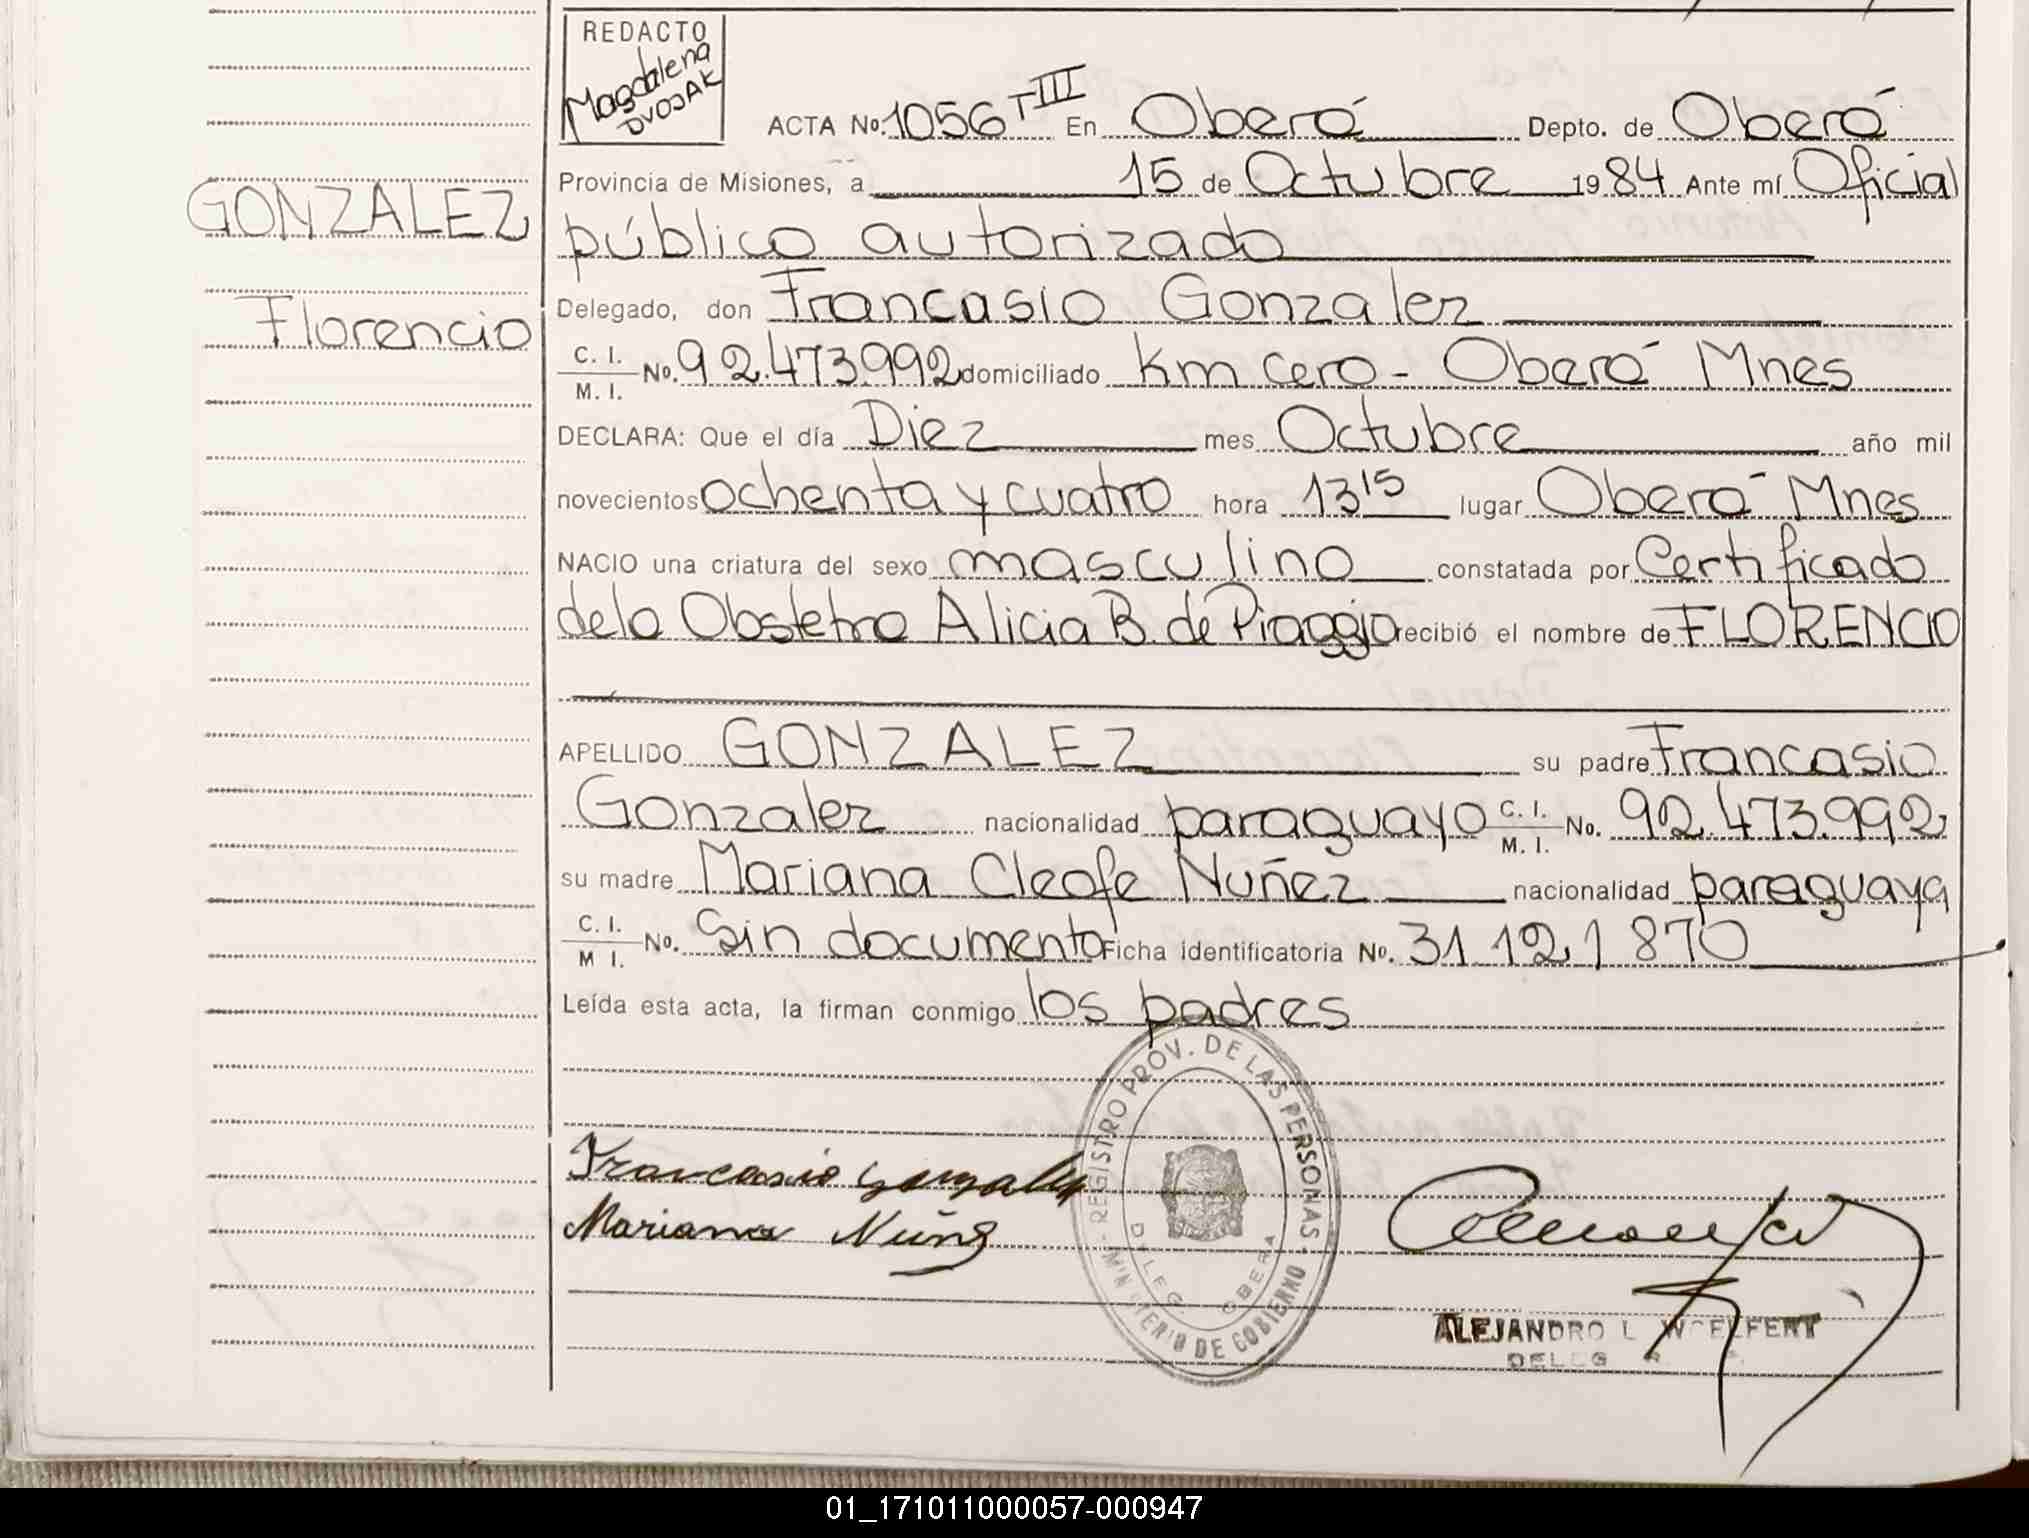 REDACTO
Magdalena
DVOJAK
ACTA No. 1056 T III En Oberá Depto. de Oberá
Provincia de Misiones, a 15 de Octubre 1984 Ante mí Oficial
GONZALEZ
público autorizado
Florencio
Delegado, don Francasio Gonzalez
C. I. M. I. No. 92.473.992 domiciliado km cero - Oberá Mnes
DECLARA: Que el día Diez mes Octubre año mil
novecientos ochenta y cuatro hora 13 15 lugar Oberá Mnes
NACIO una criatura del sexo masculino constatada por Certificado
de la Obstetra Alicia B. de Piaggio recibió el nombre de FLORENCIO
APELLIDO GONZALEZ su padre Francasio
Gonzalez nacionalidad paraguayo C. I. M. I. No. 92.473.992
su madre Mariana Cleofe Nuñez nacionalidad paraguaya
C. I. M I. No. Sin documento Ficha identificatoria No. 31 121 870
Leída esta acta, la firman conmigo los padres
REGISTRO PROV. DE LAS PERSONAS
MINISTERIO DE GOBIERNO
DELEG OBERA
Francasio Gonzalez
Mariana Nuñez
ALEJANDRO L WOELFERT
01_171011000057-000947